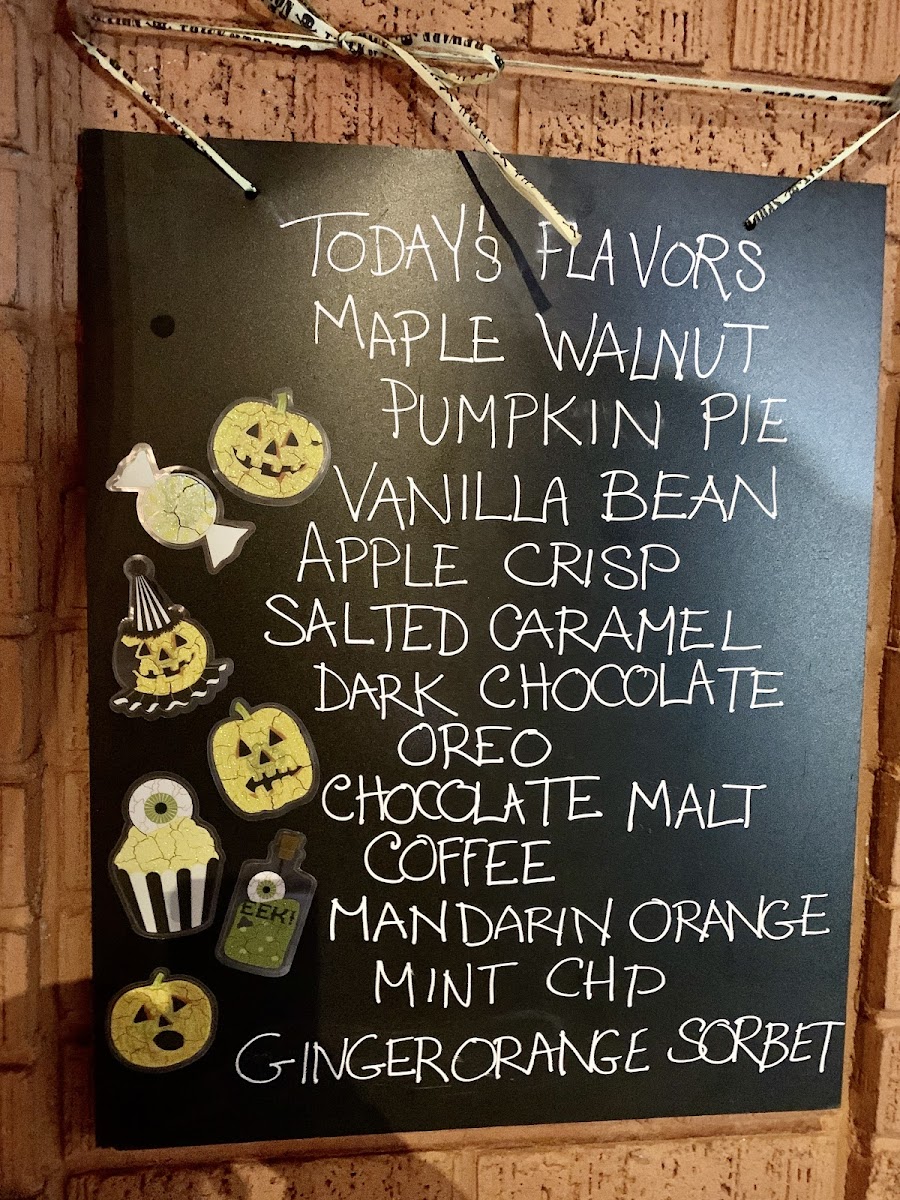 TODAY'S FLAVORS
MAPLE WALNUT
PUMPKIN PIE
VANILLA BEAN
APPLE CRISP
SALTED CARAMEL
DARK CHOCOLATE
OREO
CHOCOLATE MALT
COFFEE
MANDARIN ORANGE
EEK!
MINT CHIP
GINGER ORANGE SORBET